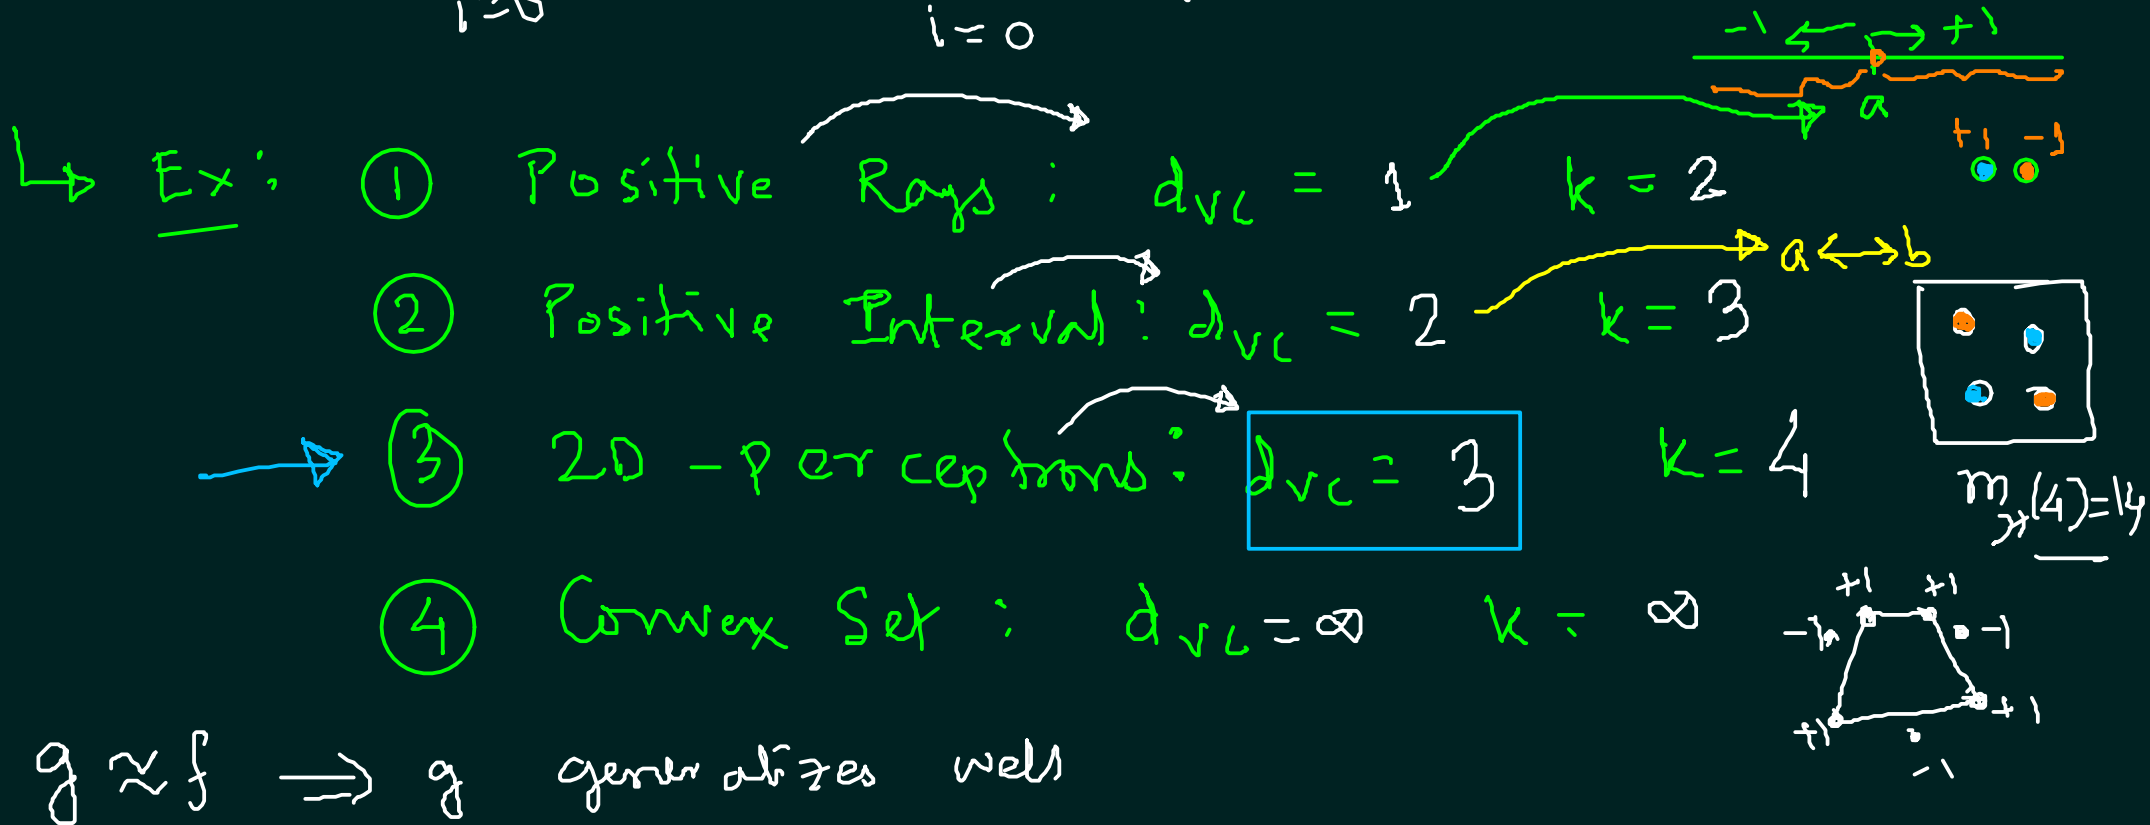 i=0 i=0
-1 +1
a
+1 -1
Ex: ① Positive Rays : dvc = 1 k = 2
a ↔ b
② Positive Interval : dvc = 2 k = 3
③ 2D - Perceptrons : dvc = 3 k = 4
m_H(4)=14
④ Convex Set : dvc = ∞ k = ∞
+1 +1
-1 -1
+1 +1
-1
g ≈ f ⟹ g generalizes well